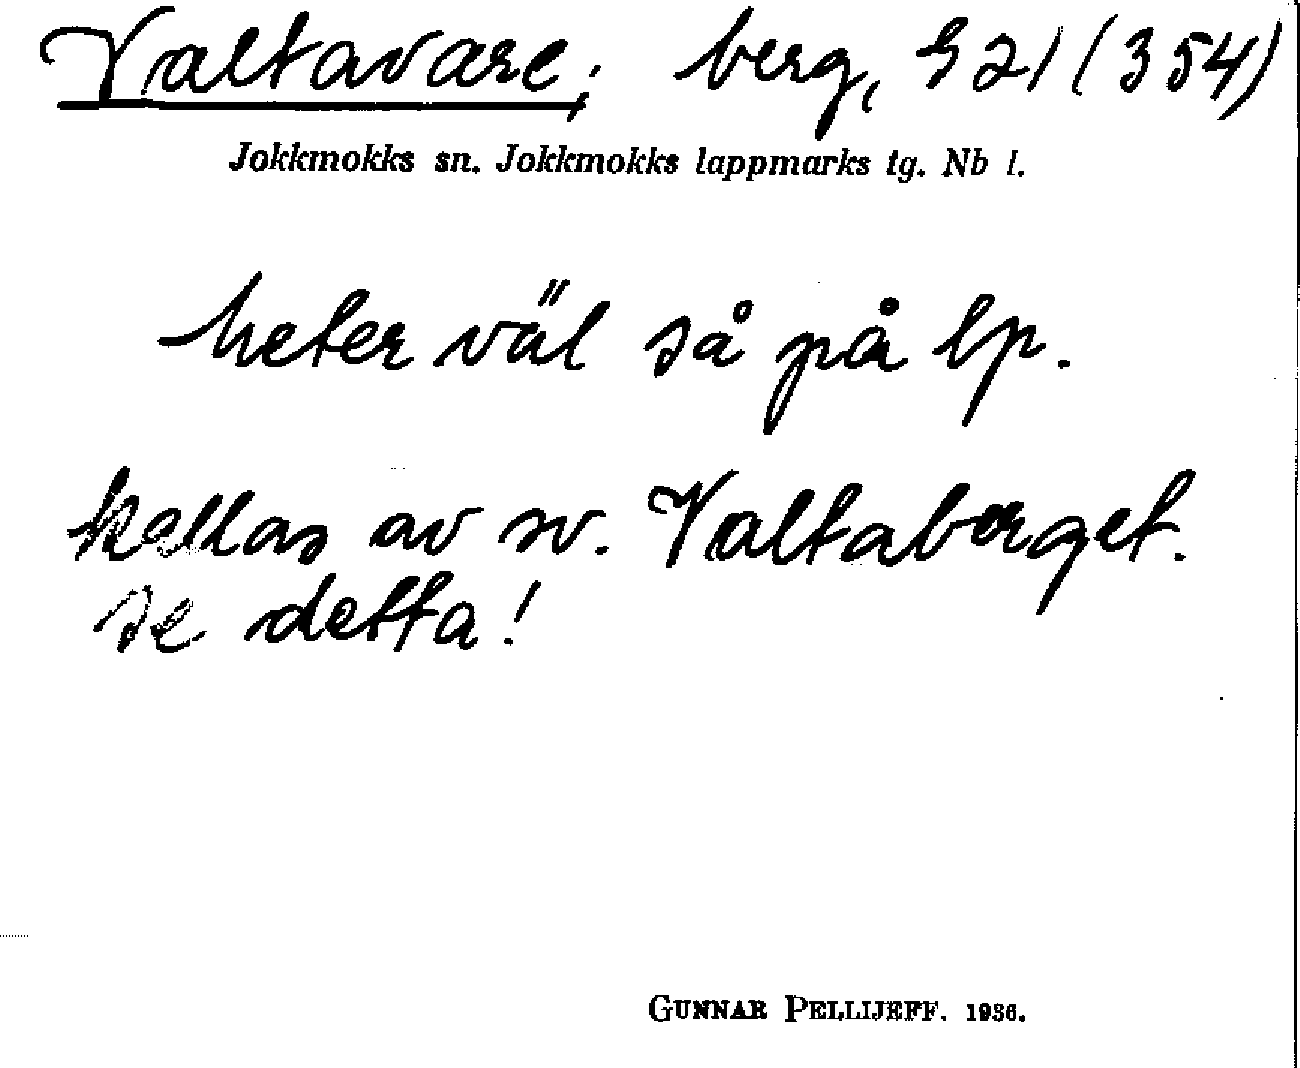 Valtavare; berg, 921 (354)
Jokkmokks sn. Jokkmokks lappmarks tg. Nb l.
heter väl så på lp.
kallas av sv. Valtaberget.
se detta!
GUNNAR PELLIJEFF. 1936.